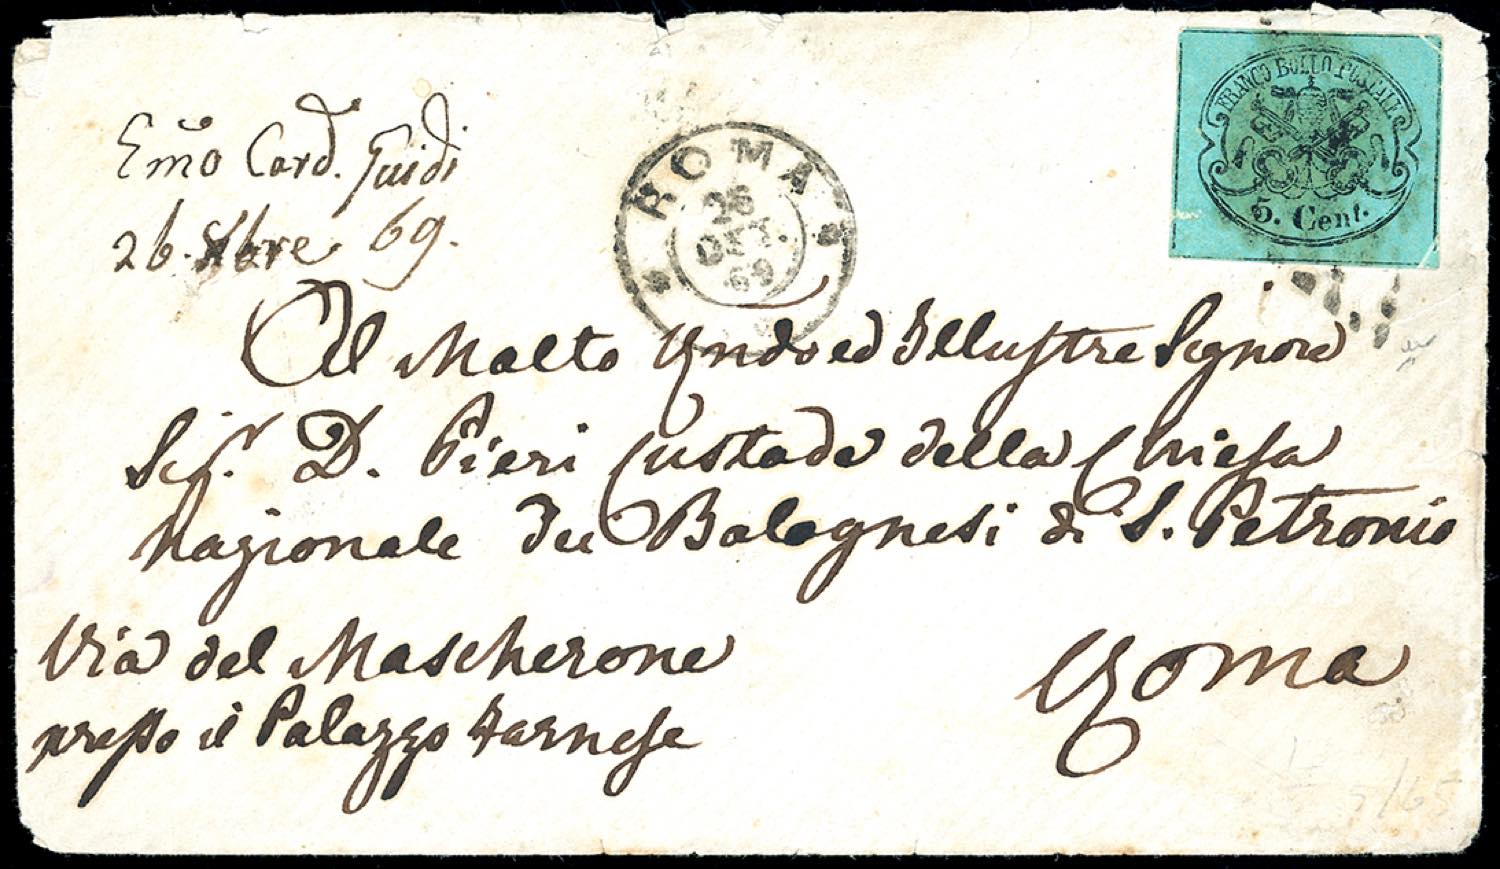 Emo Card. Guidi
26. Xbre 69.
ROMA
26
OTT.
69
FRANCO BOLLO POSTALE
5. Cent.
Al Molto Rndo ed Illustre Signore
Sigr. D. Pieri Custode della Chiesa
Nazionale dei Bolognesi di S. Petronio
Via del Mascherone
presso il Palazzo Farnese
Roma